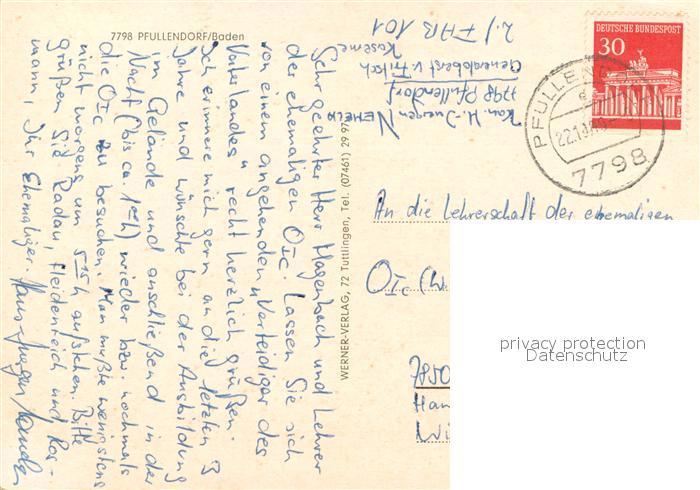 7798 PFULLENDORF/Baden
Sehr geehrter Herr Hagenbach und Lehrer
der ehemaligen OIc. Lassen Sie sich
von einem angehenden "Verteidiger des
Vaterlandes" recht herzlich grüßen.
Ich erinnere mich gern an die letzten 3
Jahre und wünschte bei der Ausbildung
im Gelände und anschließend in der
Nacht (bis ca. 1ººh) wieder bzw. nochmals
die OIc zu besuchen. Man müßte wenigstens
nicht morgens um 5¹⁵h aufstehen. Bitte
grüßen Sie Radau, Heidenreich und Ros-
mann, Ihr Ehemaliger Hans-Jürgen
WERNER-VERLAG, 72 Tuttlingen, Tel. (07461) 29 97
Kan. H.-Juergen
7798 Pfullendorf
Generaloberst v. Fritsch
Kaserne
2./FAB 101
DEUTSCHE BUNDESPOST
30
PFULLEND
7798
An die Lehrerschaft der ehemaligen
OIc (W
7850
Han
Wi
privacy protection
Datenschutz